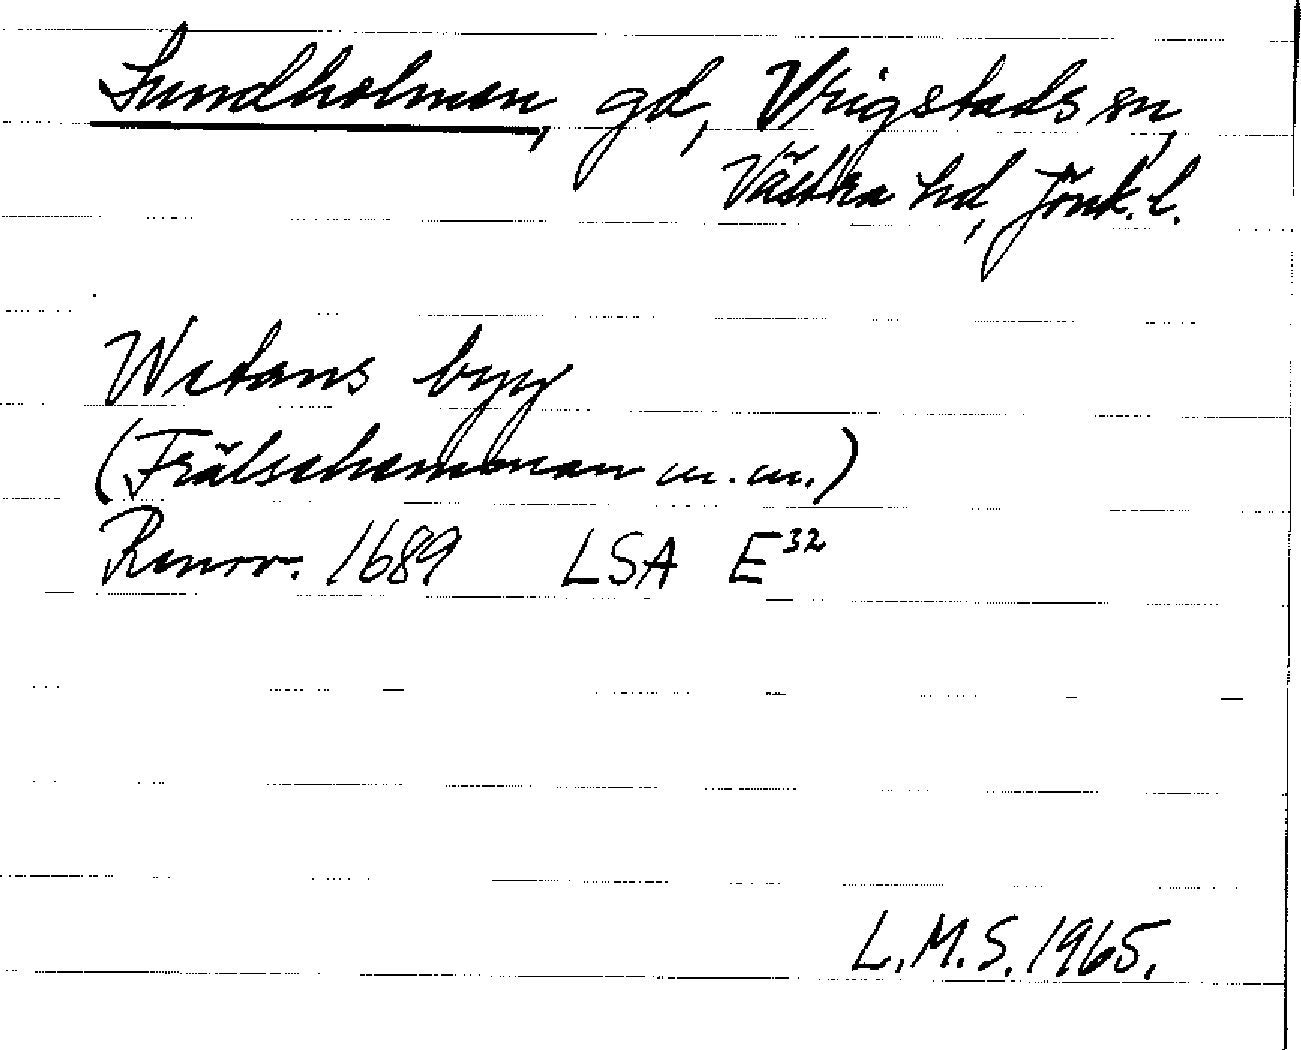 Sundholmen, gd, Vrigstads sn,
Västra hd, Jönk. l.
Wetans byy
(Frälsehemman m.m.)
Renov. 1689 LSA E32
L.M.S. 1965.